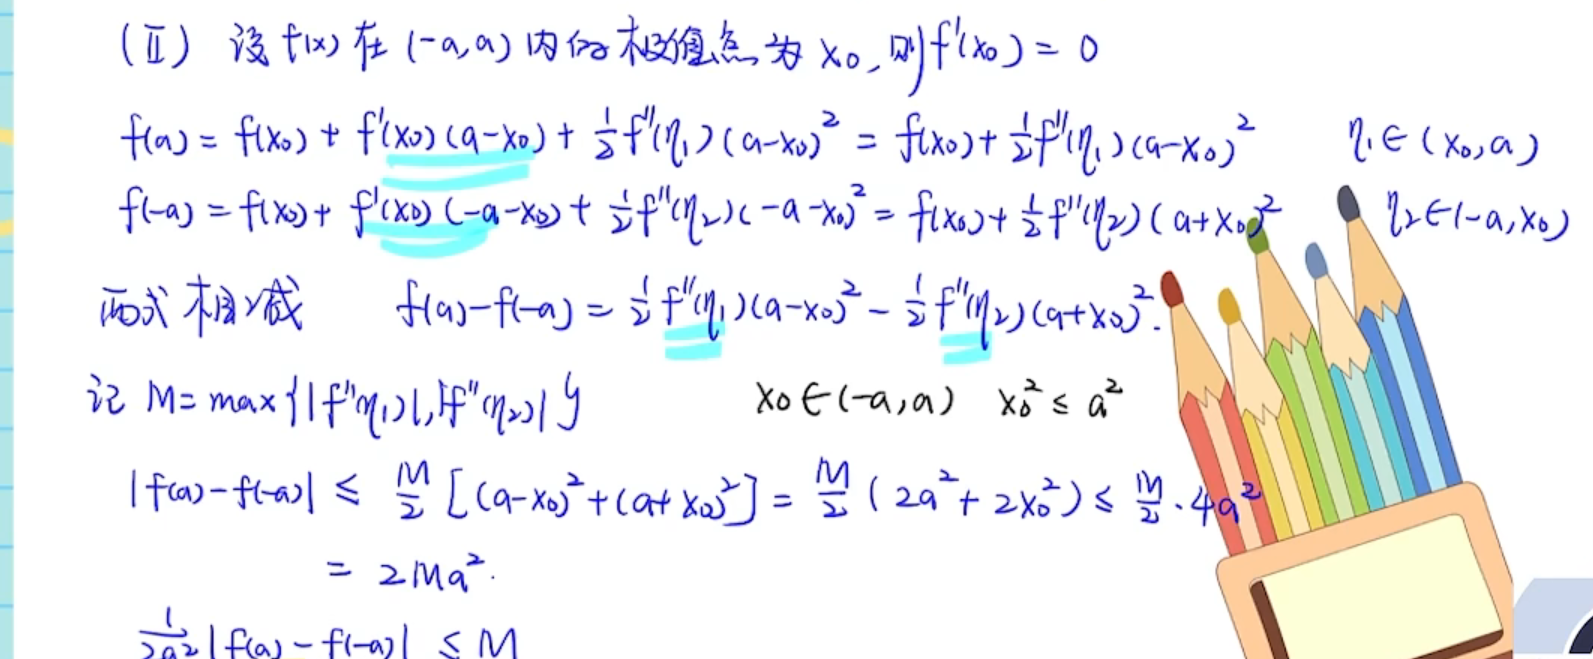 (Ⅱ) 设 f(x) 在 (-a,a) 内的极值点为 x₀, 则 f'(x₀) = 0
f(a) = f(x₀) + f'(x₀)(a-x₀) + ½f''(η₁)(a-x₀)² = f(x₀) + ½f''(η₁)(a-x₀)² η₁∈(x₀,a)
f(-a) = f(x₀) + f'(x₀)(-a-x₀) + ½f''(η₂)(-a-x₀)² = f(x₀) + ½f''(η₂)(a+x₀)² η₂∈(-a,x₀)
两式相减 f(a)-f(-a) = ½f''(η₁)(a-x₀)² - ½f''(η₂)(a+x₀)².
记 M = max{|f''(η₁)|,|f''(η₂)|} x₀∈(-a,a) x₀² ≤ a²
|f(a)-f(-a)| ≤ M/2 [(a-x₀)²+(a+x₀)²] = M/2 (2a²+2x₀²) ≤ M/2 · 4a²
= 2Ma².
1/2a² |f(a)-f(-a)| ≤ M